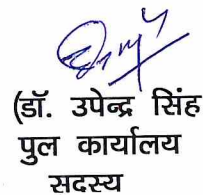 (डॉ. उपेन्द्र सिंह
पुल कार्यालय
सदस्य